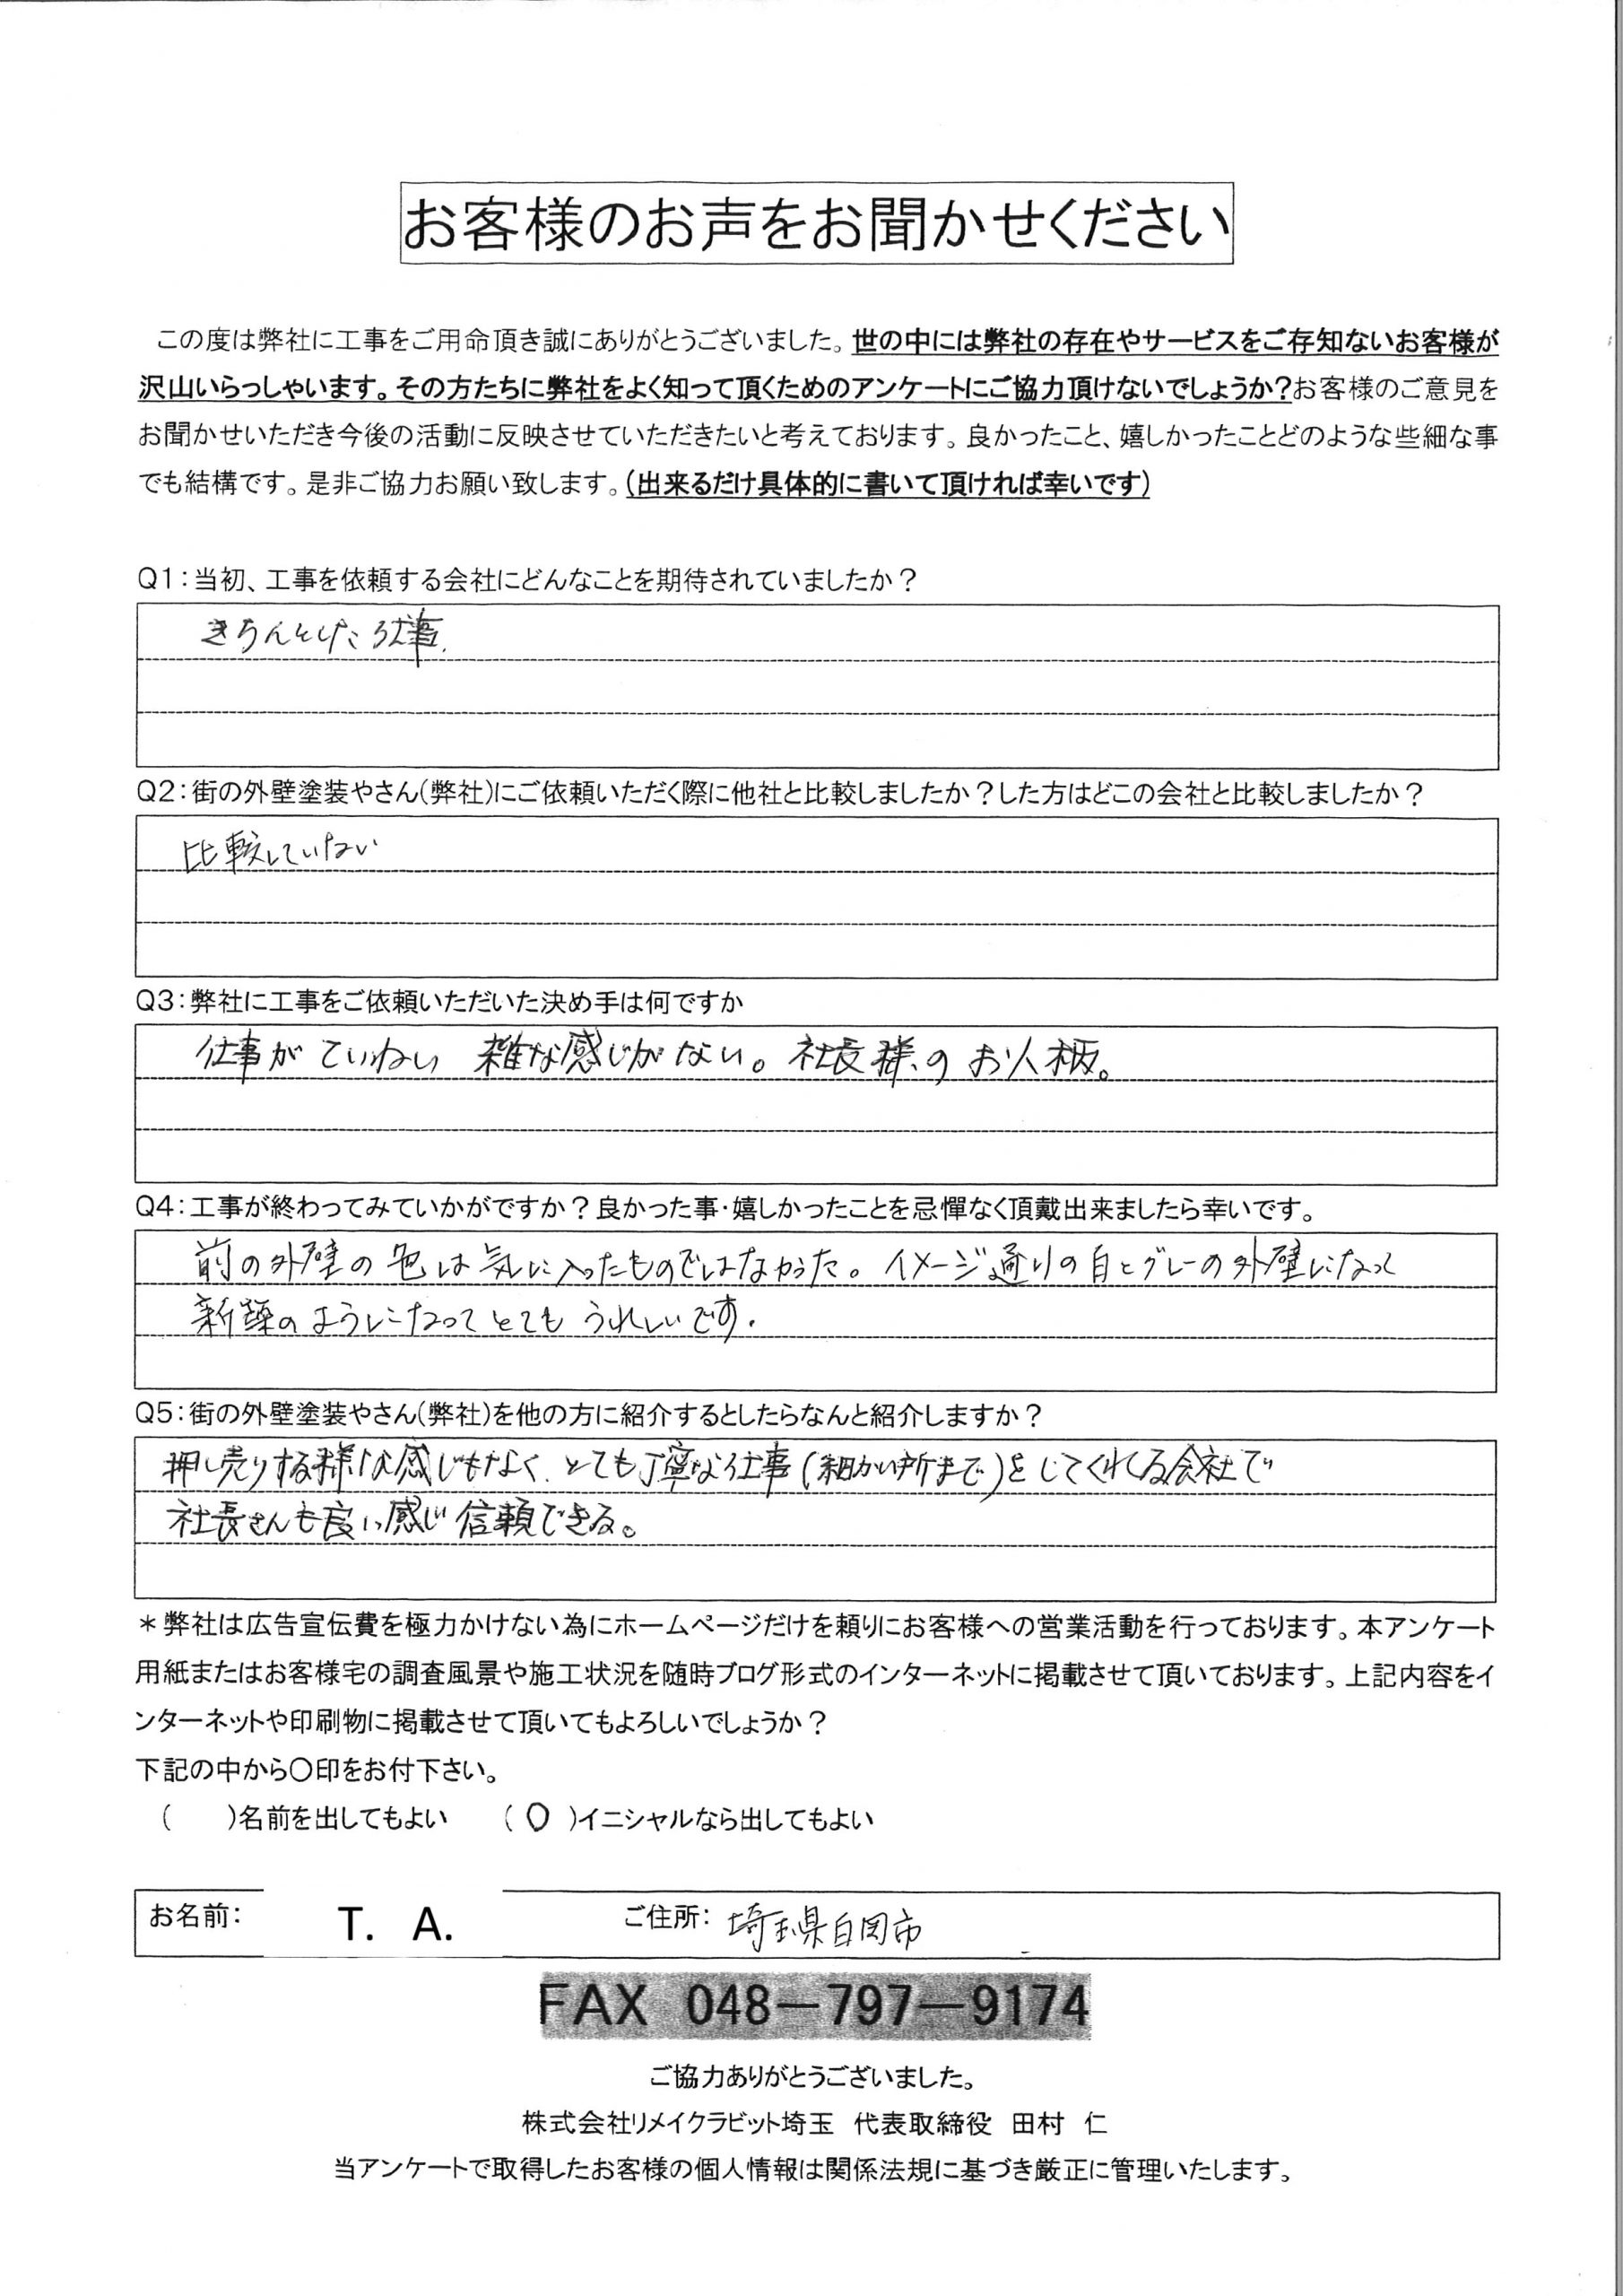 お客様のお声をお聞かせください
この度は弊社に工事をご用命頂き誠にありがとうございました。世の中には弊社の存在やサービスをご存知ないお客様が
沢山いらっしゃいます。その方たちに弊社をよく知って頂くためのアンケートにご協力頂けないでしょうか?お客様のご意見を
お聞かせいただき今後の活動に反映させていただきたいと考えております。良かったこと、嬉しかったことどのような些細な事
でも結構です。是非ご協力お願い致します。(出来るだけ具体的に書いて頂ければ幸いです)
Q1:当初、工事を依頼する会社にどんなことを期待されていましたか?
きちんとした仕事.
Q2:街の外壁塗装やさん(弊社)にご依頼いただく際に他社と比較しましたか?した方はどこの会社と比較しましたか?
比較していない
Q3:弊社に工事をご依頼いただいた決め手は何ですか
仕事がていねい 雑な感じがない。社長様のお人柄。
Q4:工事が終わってみていかがですか?良かった事・嬉しかったことを忌憚なく頂戴出来ましたら幸いです。
前の外壁の色は気に入ったものではなかった。イメージ通りの白とグレーの外壁になって
新築のようになってとてもうれしいです.
Q5:街の外壁塗装やさん(弊社)を他の方に紹介するとしたらなんと紹介しますか?
押し売りする様な感じもなく、とても丁寧な仕事(細かい所まで)をしてくれる会社で
社長さんも良い感じ信頼できる。
*弊社は広告宣伝費を極力かけない為にホームページだけを頼りにお客様への営業活動を行っております。本アンケート
用紙またはお客様宅の調査風景や施工状況を随時ブログ形式のインターネットに掲載させて頂いております。上記内容をイ
ンターネットや印刷物に掲載させて頂いてもよろしいでしょうか?
下記の中から〇印をお付下さい。
( )名前を出してもよい (〇)イニシャルなら出してもよい
お名前: T. A. ご住所: 埼玉県白岡市
FAX 048-797-9174
ご協力ありがとうございました。
株式会社リメイクラビット埼玉 代表取締役 田村 仁
当アンケートで取得したお客様の個人情報は関係法規に基づき厳正に管理いたします。